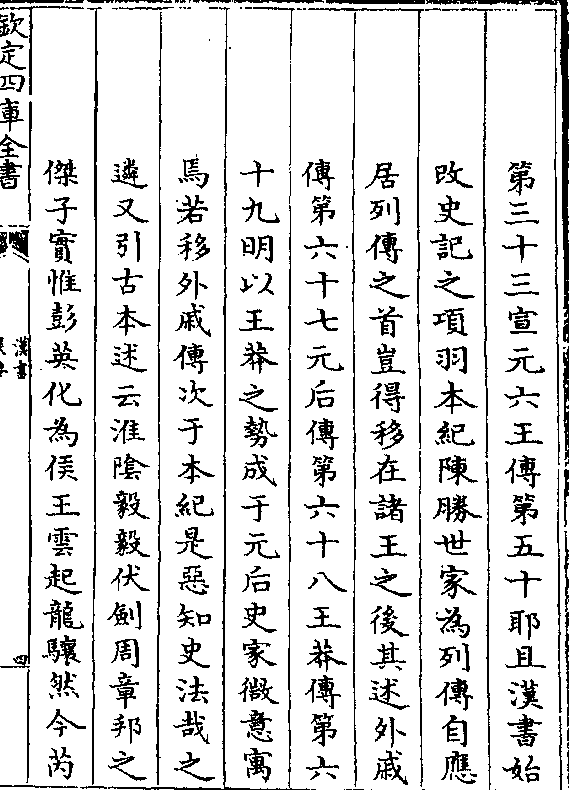 第三十三宣元六王傳第五十耶且漢書始
改史記之項羽本紀陳勝世家為列傳自應
居列傳之首豈得移在諸王之後其述外戚
傳第六十七元后傳第六十八王莽傳第六
十九明以王莽之勢成于元后史家微意寓
焉若移外戚傳次于本紀是惡知史法哉之
遴又引古本述云淮陰毅毅伏劍周章邦之
傑子實惟彭英化為侯王雲起龍驤然今芮
欽定四庫全書
漢書
四